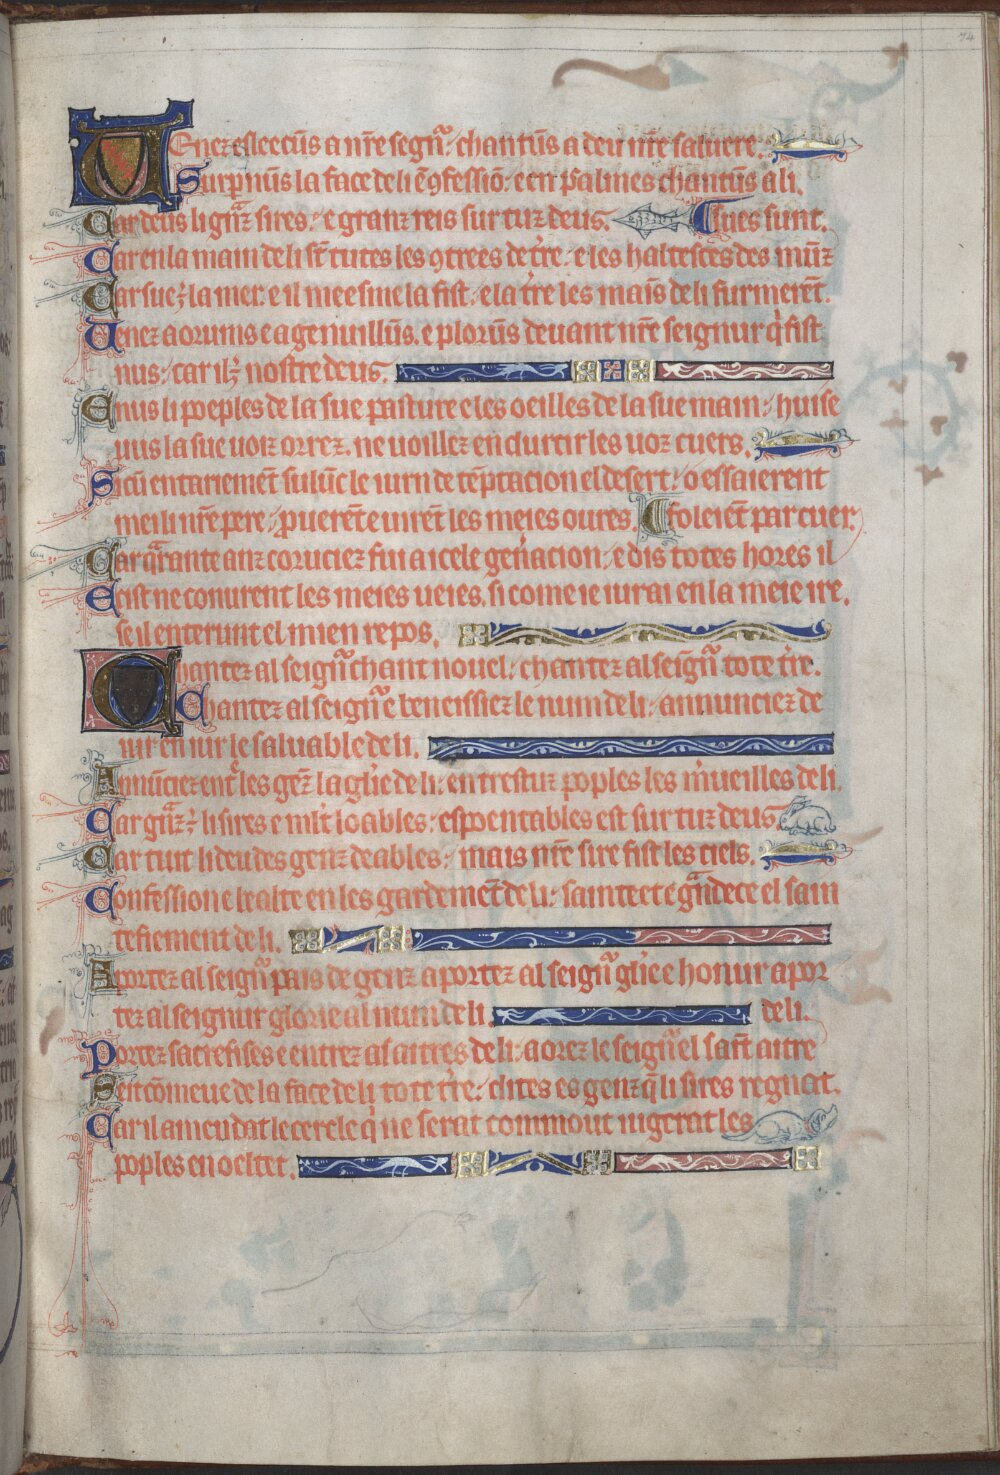 74
Venez esleecūs a nr̄e segnr̄. chantūs a deu nr̄e salvere.
Surpnūs la face de li e ꝯfessiō. e en psalmes chantūs a li.
Car deus li granz sires. e granz reis sur tuz deus. Ki sues sunt.
Car en la main de li sūt tutes les ꝯtrees de tr̄e. e les haltesces des munz
Car sue est la mer. e il meesme la fist. e la tr̄e les mains de li furmerēt.
Venez aorums e agenuillūs. e plorūs devant nr̄e seignur q̄ fist
nus. car il est nostre deus.
E nus li poeples de la sue pasture e les oeilles de la sue main. huise
vus la sue voiz orrez. ne voillez endurcir les voz cuers.
Sicū entariemēt sulūc le iurn de tēptacion el desert. o essaierent
mei li nr̄e pere. pruerēt e virēt les meies oures. foleiēt par cuer.
Car q̄rante anz coruciez fui a icele gen̄acion. e dis totes hores il
E cist ne conurent les meies veies. si come ie iurai en la meie ire.
se il enterunt el mien repos.
Chantez al seignr̄ chant nouel. chantez al seignr̄ tote tr̄e.
Chantez al seignr̄ e beneissiez le num de li. annunciez de
iur en iur le saluable de li.
Annūciez entre les gēz la glīe de li. en trestuz poples les m̄ueilles de li.
Car grāz est li sires e mlt̄ loables. espoentables est sur tuz deus
Car tuit li deu des genz deables. mais nr̄e sire fist les ciels.
Confession e bealte en les gardemēt de li. sainteet e grāndece el sain
tefiement de li.
Aportez al seignr̄ pais de genz aportez al seignr̄ glīe e honur apor
tez al seignur glorie al num de li. de li.
Portez sacrefises e entrez as aitres de li. aorez le seignr̄ el saīt aitre
Seit cōmeue de la face de li tote tr̄e. dites es genz q̄ li sires regnat.
Car il amendat le cercle q̄ ne serat commout iugerat les
poples en oeltet.